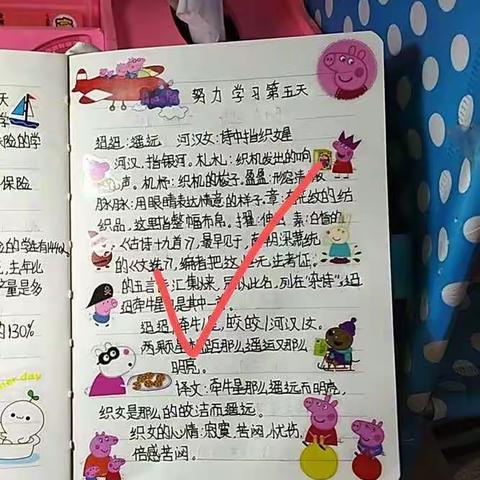 天
学
保险的学
保险
主,年龄
量是多
的130%
er day
努力学习第五天
迢迢:遥远 河汉女:诗中指织女星
河汉,指银河。札札:织机发出的响
声。机杼:织机的梭子。盈盈:形容清
脉脉:用眼睛表达情意的样子。章:有花纹的纺
织品,这里指整幅布帛。擢:伸 素:白皙的
《古诗十九首》,最早见于,南朝梁萧统
的《文选》,编者把这 无法考证。
的五言诗汇集起来, 以此名,列在“杂诗”,迢
迢牵牛星 是其中
迢迢牵牛星,皎皎河汉女。
两颗星相距那么遥远又那么
明亮。
译文:牵牛星那么遥远而明亮,
织女是那么的皎洁而遥远。
织女的心情:寂寞,苦闷,忧伤,
倍感苦闷。